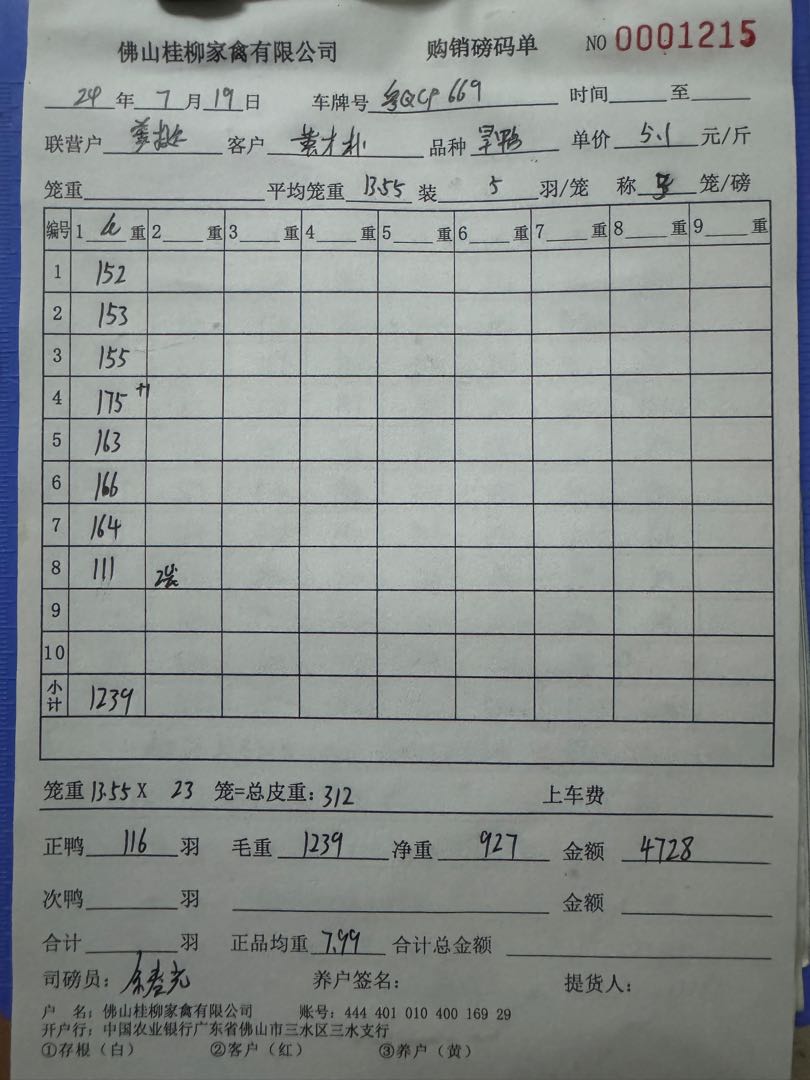 佛山桂柳家禽有限公司 购销磅码单 NO 0001215
24年7月19日 车牌号 粤QCP669 时间 至
联营户 客户 品种 旱鸭 单价 5.1 元/斤
笼重 平均笼重 13.55 装 5 羽/笼 称 3 笼/磅
编号 1 重 2 重 3 重 4 重 5 重 6 重 7 重 8 重 9 重
1 152
2 153
3 155
4 175 +1
5 163
6 166
7 164
8 111 2笼
9
10
小计 1239
笼重 13.55 X 23 笼=总皮重: 312 上车费
正鸭 116 羽 毛重 1239 净重 927 金额 4728
次鸭 羽 金额
合计 羽 正品均重 7.99 合计总金额
司磅员: 养户签名: 提货人:
户 名: 佛山桂柳家禽有限公司 账号: 444 401 010 400 169 29
开户行: 中国农业银行广东省佛山市三水区三水支行
①存根(白) ②客户(红) ③养户(黄)